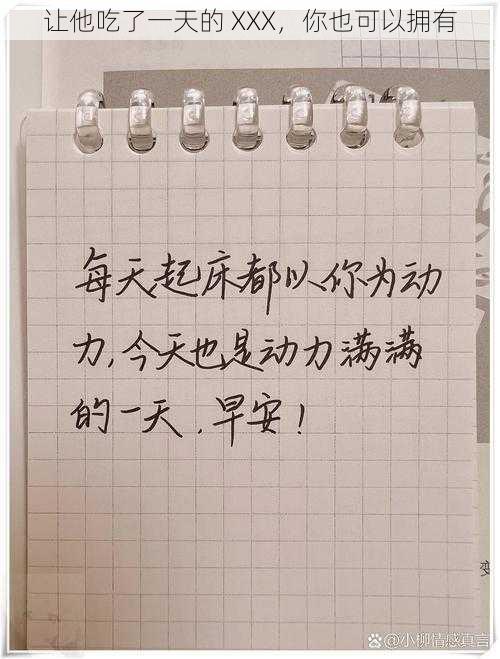 让他吃了一天的 XXX，你也可以拥有
每天起床都以你为动
力,今天也是动力满满
的一天.早安!
变
@小柳情感真言